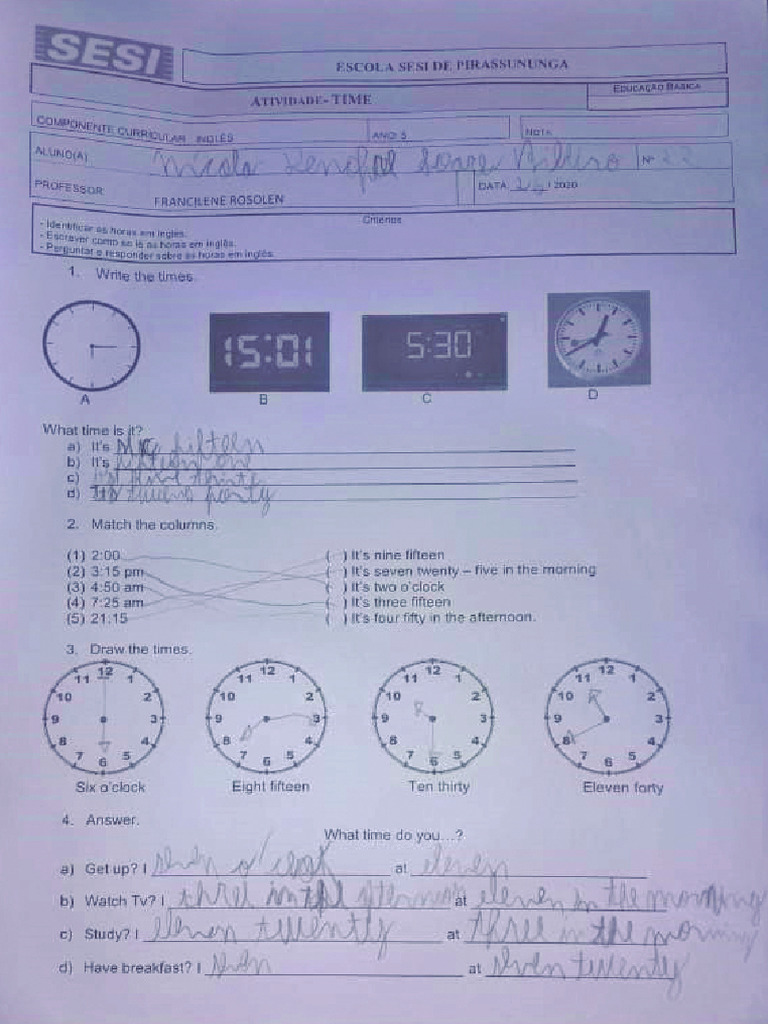 SESI
ESCOLA SESI DE PIRASSUNUNGA
ATIVIDADE- TIME
EDUCAÇÃO BÁSICA
COMPONENTE CURRICULAR INGLÊS ANO 5 NOTA
ALUNO(A) Nº 22
PROFESSOR FRANCILENE ROSOLEN DATA / 2020
Critérios
- Identificar as horas em inglês.
- Escrever como se lê as horas em inglês.
- Perguntar e responder sobre as horas em inglês.
1. Write the times.
15:01 5:30
A B C D
What time is it?
a) It's fifteen
b) It's fifteen one
c) It's
d) It's
2. Match the columns.
(1) 2:00 ( ) It's nine fifteen
(2) 3:15 pm ( ) It's seven twenty – five in the morning
(3) 4:50 am ( ) It's two o'clock
(4) 7:25 am ( ) It's three fifteen
(5) 21:15 ( ) It's four fifty in the afternoon.
3. Draw the times.
12 1 2 3 4 5 6 7 8 9 10 11
12 1 2 3 4 5 6 7 8 9 10 11
12 1 2 3 4 5 6 7 8 9 10 11
12 1 2 3 4 5 6 7 8 9 10 11
Six o'clock Eight fifteen Ten thirty Eleven forty
4. Answer.
What time do you...?
a) Get up? I at eleven
b) Watch Tv? I three in the at eleven in the morning
c) Study? I eleven twenty at three in the morning
d) Have breakfast? I at seven twenty